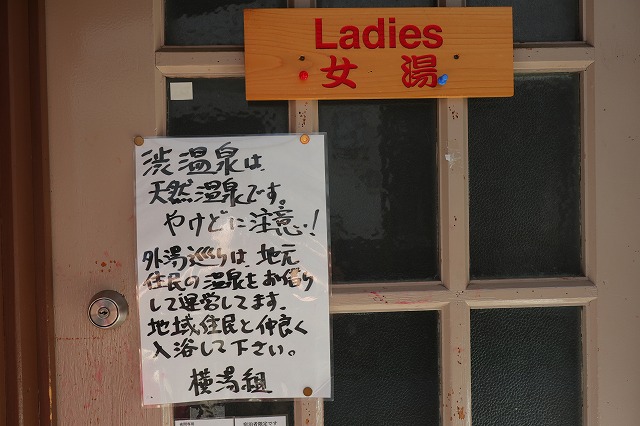 Ladies
女湯
渋温泉は
天然温泉です。
やけどに注意!
外湯巡りは地元
住民の温泉をお借り
して運営してます。
地域住民と仲良く
入浴して下さい。
横湯組